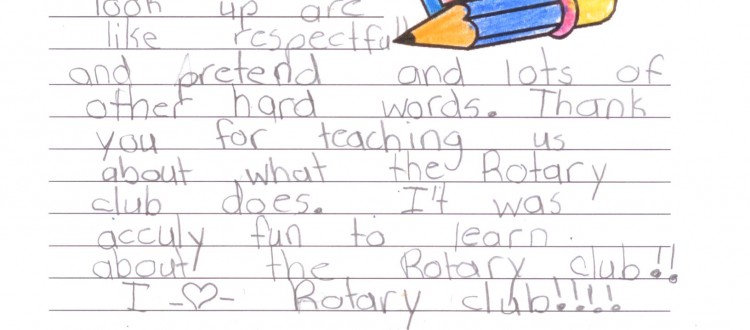 look up are
like respectful
and pretend and lots of
other hard words. Thank
you for teaching us
about what the Rotary
club does. It was
acculy fun to learn
about the Rotary club!!
I -♡- Rotary club!!!!